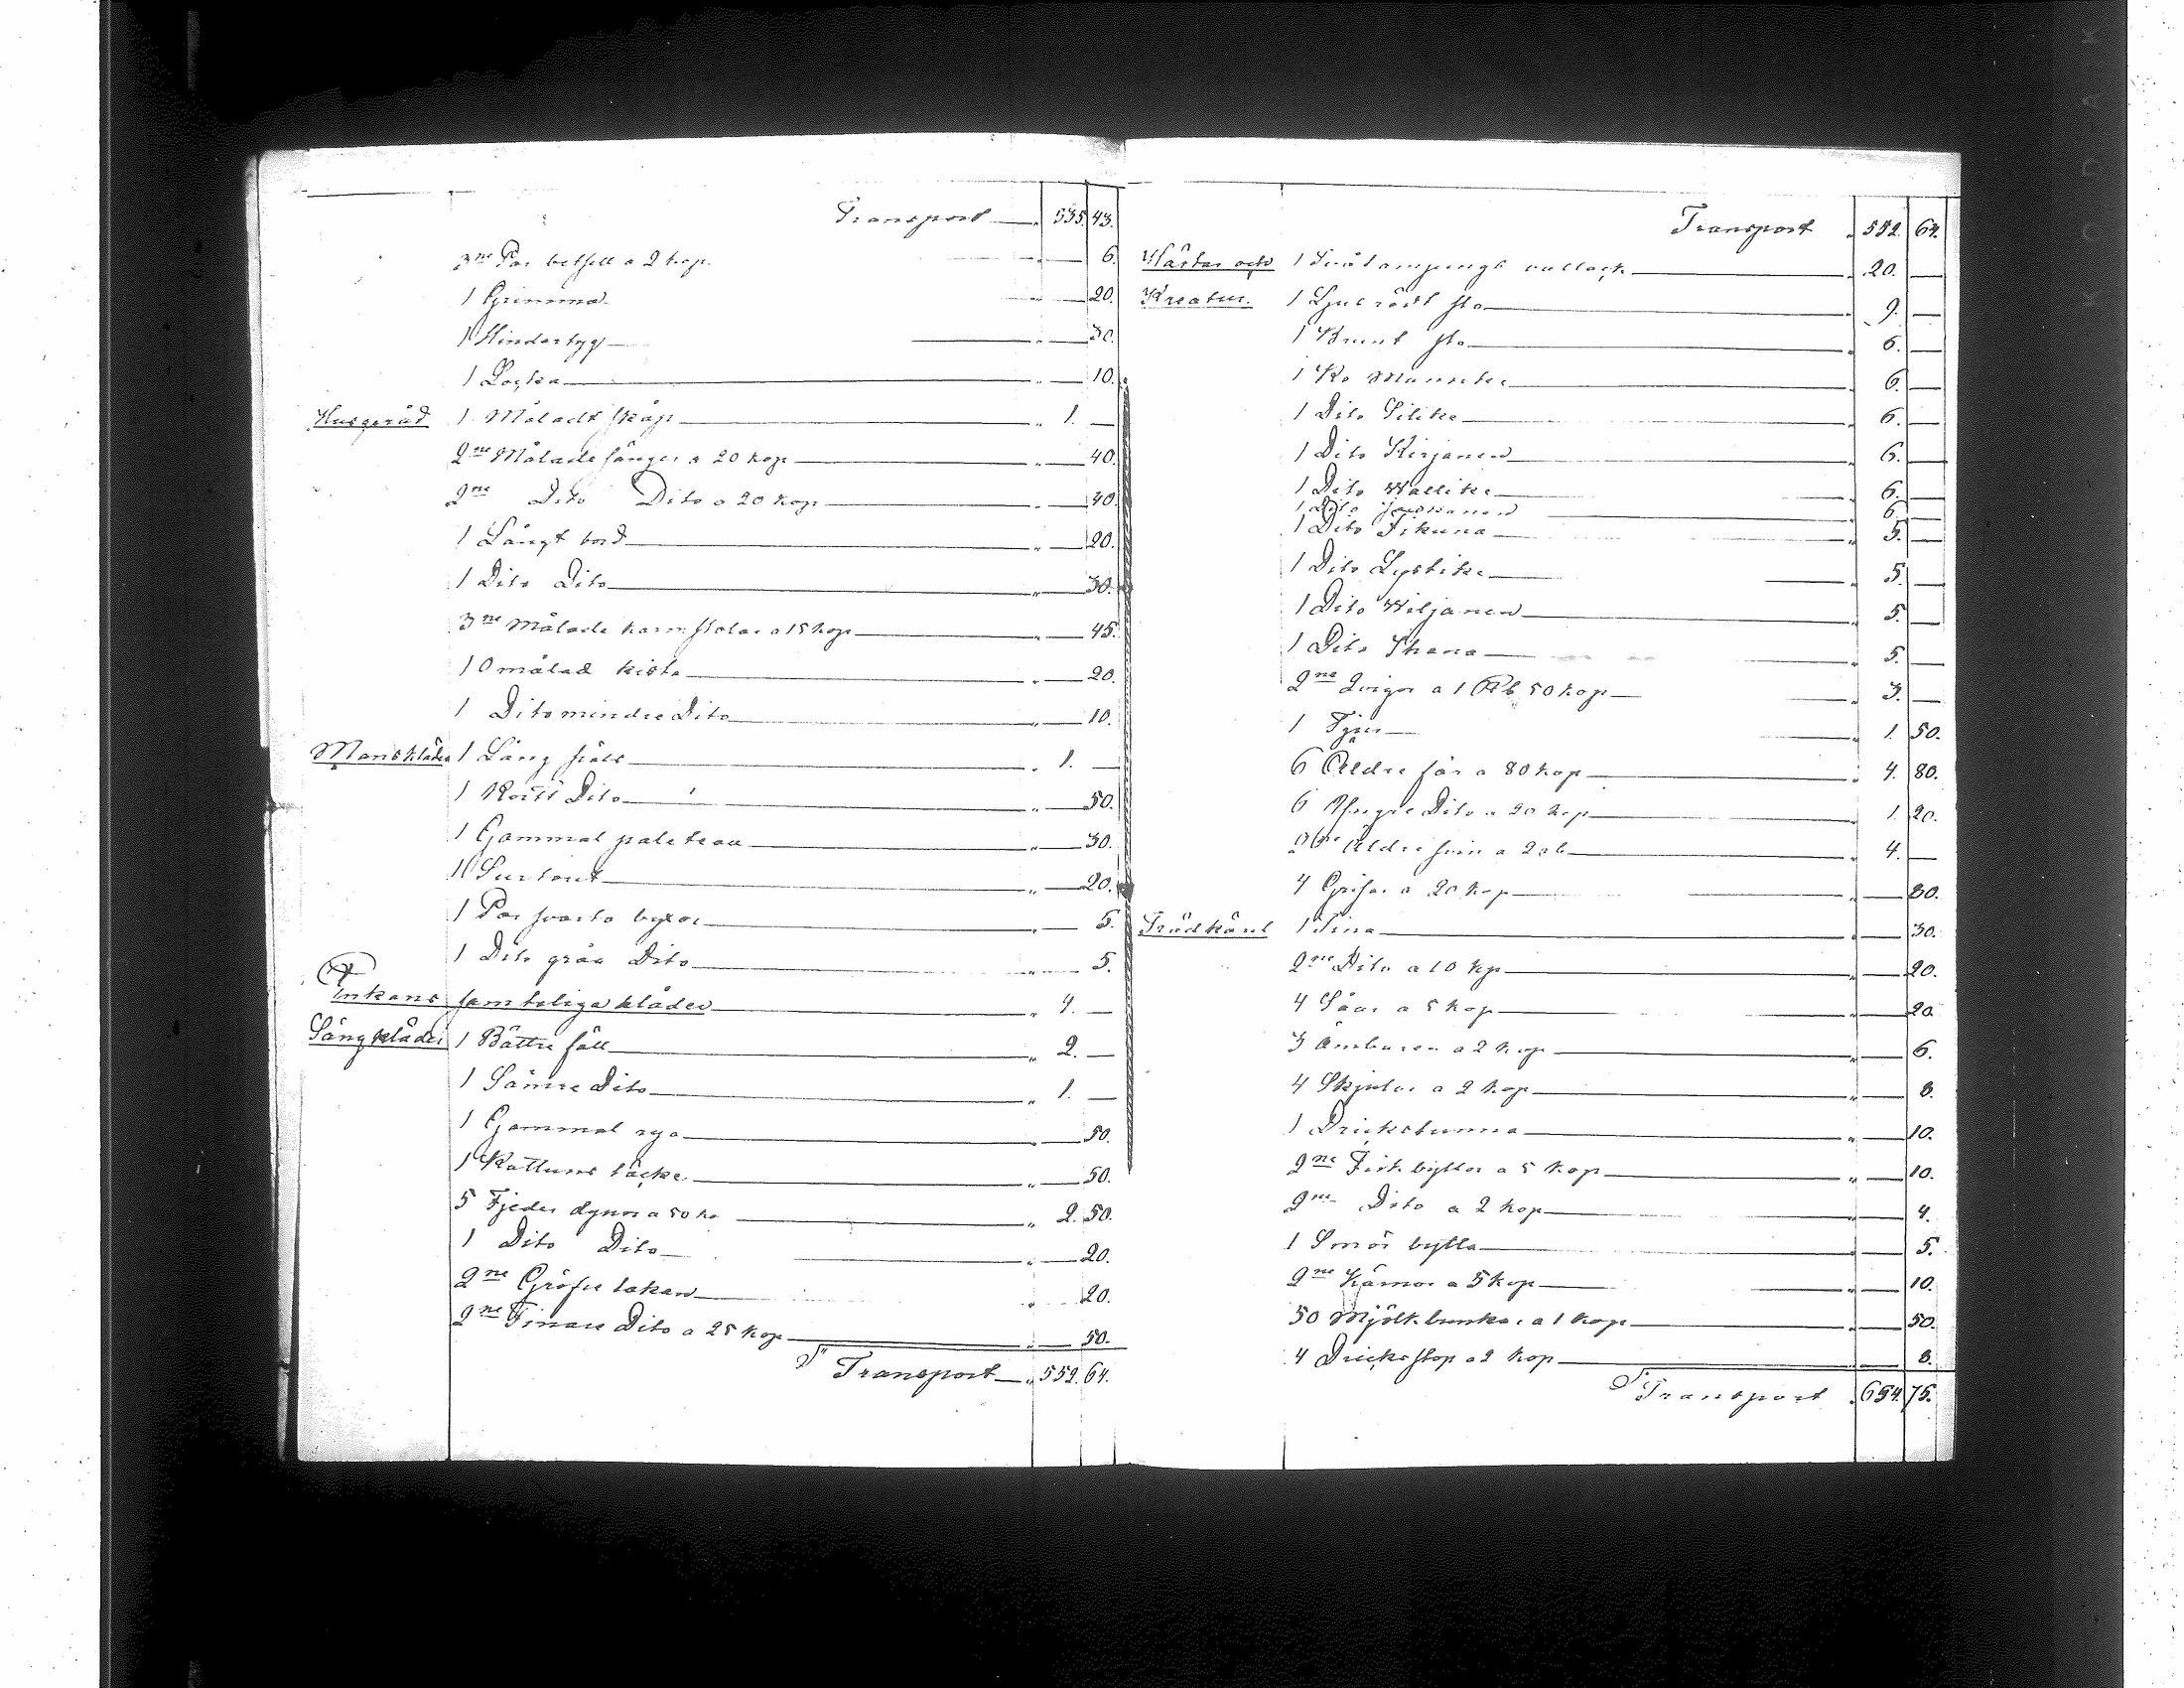 Transport 535. 43.
3ne Par betsell a 2 kop. 6.
1 Grimma 20.
1 Hindertyg 30.
1 Locka 10.
Husgeråd 1 Måladt skåp 1. —
2ne Målade sängar a 20 kop 40.
2ne Dito Dito a 20 kop 40.
1 Långt bord 20.
1 Dito Dito 30.
3ne Målade karmstolar a 15 kop 45.
1 Omålad kista 20.
1 Dito mindre Dito 10.
Manskläder 1 Lång päls 1. —
1 Kort Dito 50.
1 Gammal paleteau 30.
1 Surtout 20.
1 Par svarta byxor 5.
1 Dito gråa Dito 5.
Enkans samteliga kläder 4. —
Sängkläder 1 Bättre fäll 2. —
1 Sämre Dito 1. —
1 Gammal rya 50.
1 Kattuns täcke 50.
5 Fjeder dynor a 50 ko 2. 50.
1 Dito Dito 20.
2ne Gröfre lakan 20.
2ne Finare Dito a 25 kop 50.
Transport 552. 64.
Transport 552. 64.
Hästar och 1 vallack 20. —
Kreatur. 1 Ljusrödt sto 9. —
1 Brunt sto 6. —
1 Ko Mansike 6. —
1 Dito Silike 6. —
1 Dito Kirjanen 6. —
1 Dito Wallike 6. —
1 Dito 6. —
1 Dito Fikuna 5. —
1 Dito Lystike 5. —
1 Dito Wiljanen 5. —
1 Dito Ihana 5. —
2ne Qvigor a 1 Rb 50 kop 3. —
1 Tjur 1. 50.
6 Äldre får a 80 kop 4. 80.
6 Yngre Dito a 20 kop 1. 20.
2ne Äldre svin a 2 rb 4. —
4 Grisar a 20 kop 80.
Trädkäril 1 Tina 30.
2ne Dito a 10 kop 20.
4 Såar a 5 kop 20.
3 Ämbaren a 2 kop 6.
4 Skjulor a 2 kop 8.
1 Drickstunna 10.
2ne Fisk byttor a 5 kop 10.
2ne Dito a 2 kop 4.
1 Smör bytta 5.
2ne Kärnor a 5 kop 10.
50 Mjölk bunkar a 1 kop 50.
4 Dricksstop a 2 kop 8.
Transport 654. 75.